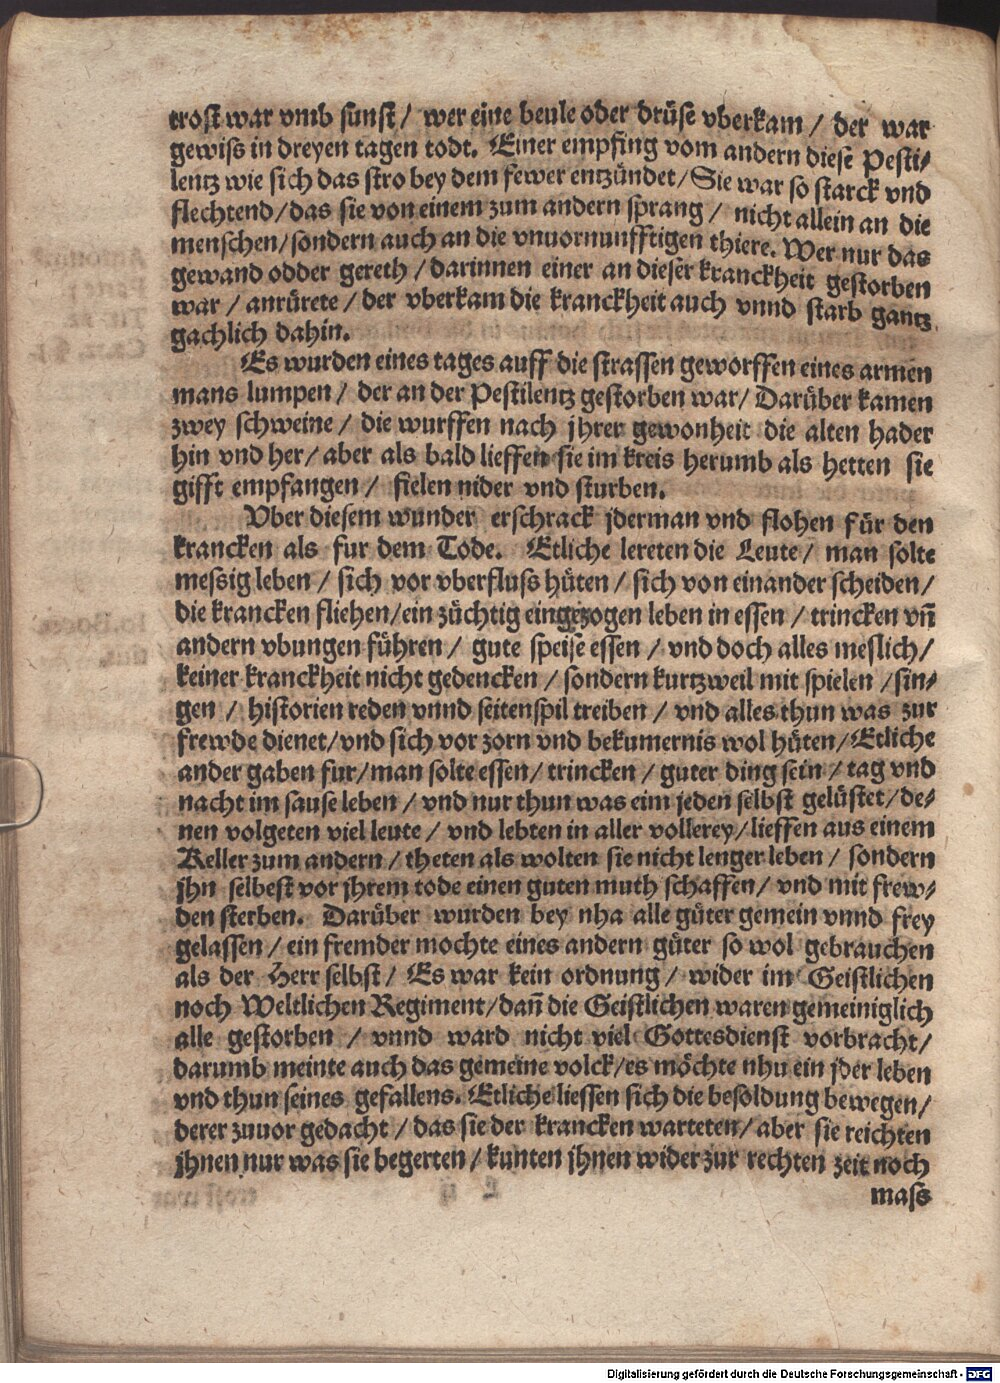 trost war vmb sunst / wer eine beule oder drüse vberkam / der war
gewiss in dreyen tagen todt. Einer empfing vom andern diese Pesti⸗
lentz wie sich das stro bey dem fewer entzündet / Sie war so starck vnd
flechtend / das sie von einem zum andern sprang / nicht allein an die
menschen / sondern auch an die vnuornunfftigen thiere. Wer nur das
gewand odder gereth / darinnen einer an dieser kranckheit gestorben
war / anrürete / der vberkam die kranckheit auch vnnd starb gantz
gachlich dahin.
Es wurden eines tages auff die strassen geworffen eines armen
mans lumpen / der an der Pestilentz gestorben war / Darüber kamen
zwey schweine / die wurffen nach jhrer gewonheit die alten hader
hin vnd her / aber als bald lieffen sie im kreis herumb als hetten sie
gifft empfangen / fielen nider vnd sturben.
Vber diesem wunder erschrack jderman vnd flohen für den
krancken als fur dem Tode. Etliche lereten die Leute / man solte
messig leben / sich vor vberfluss hüten / sich von einander scheiden /
die krancken fliehen / ein züchtig eingezogen leben in essen / trincken vn̄
andern vbungen führen / gute speise essen / vnd doch alles meslich /
keiner kranckheit nicht gedencken / sondern kurtzweil mit spielen / sin⸗
gen / historien reden vnnd seitenspil treiben / vnd alles thun was zur
frewde dienet / vnd sich vor zorn vnd bekumernis wol hüten / Etliche
ander gaben fur / man solte essen / trincken / guter ding sein / tag vnd
nacht im sause leben / vnd nur thun was eim jeden selbst gelüstet / de⸗
nen volgeten viel leute / vnd lebten in aller vollerey / lieffen aus einem
Keller zum andern / theten als wolten sie nicht lenger leben / sondern
jhn selbest vor jhrem tode einen guten muth schaffen / vnd mit frew⸗
den sterben. Darüber wurden bey nha alle güter gemein vnnd frey
gelassen / ein fremder mochte eines andern güter so wol gebrauchen
als der Herr selbst / Es war kein ordnung / wider im Geistlichen
noch Weltlichen Regiment / dan̄ die Geistlichen waren gemeiniglich
alle gestorben / vnnd ward nicht viel Gottesdienst vorbracht /
darumb meinte auch das gemeine volck / es möchte nhu ein jder leben
vnd thun seines gefallens. Etliche liessen sich die besoldung bewegen /
derer zuuor gedacht / das sie der krancken warteten / aber sie reichten
jhnen nur was sie begerten / kunten jhnen wider zur rechten zeit noch
mass
Digitalisierung gefördert durch die Deutsche Forschungsgemeinschaft - DFG